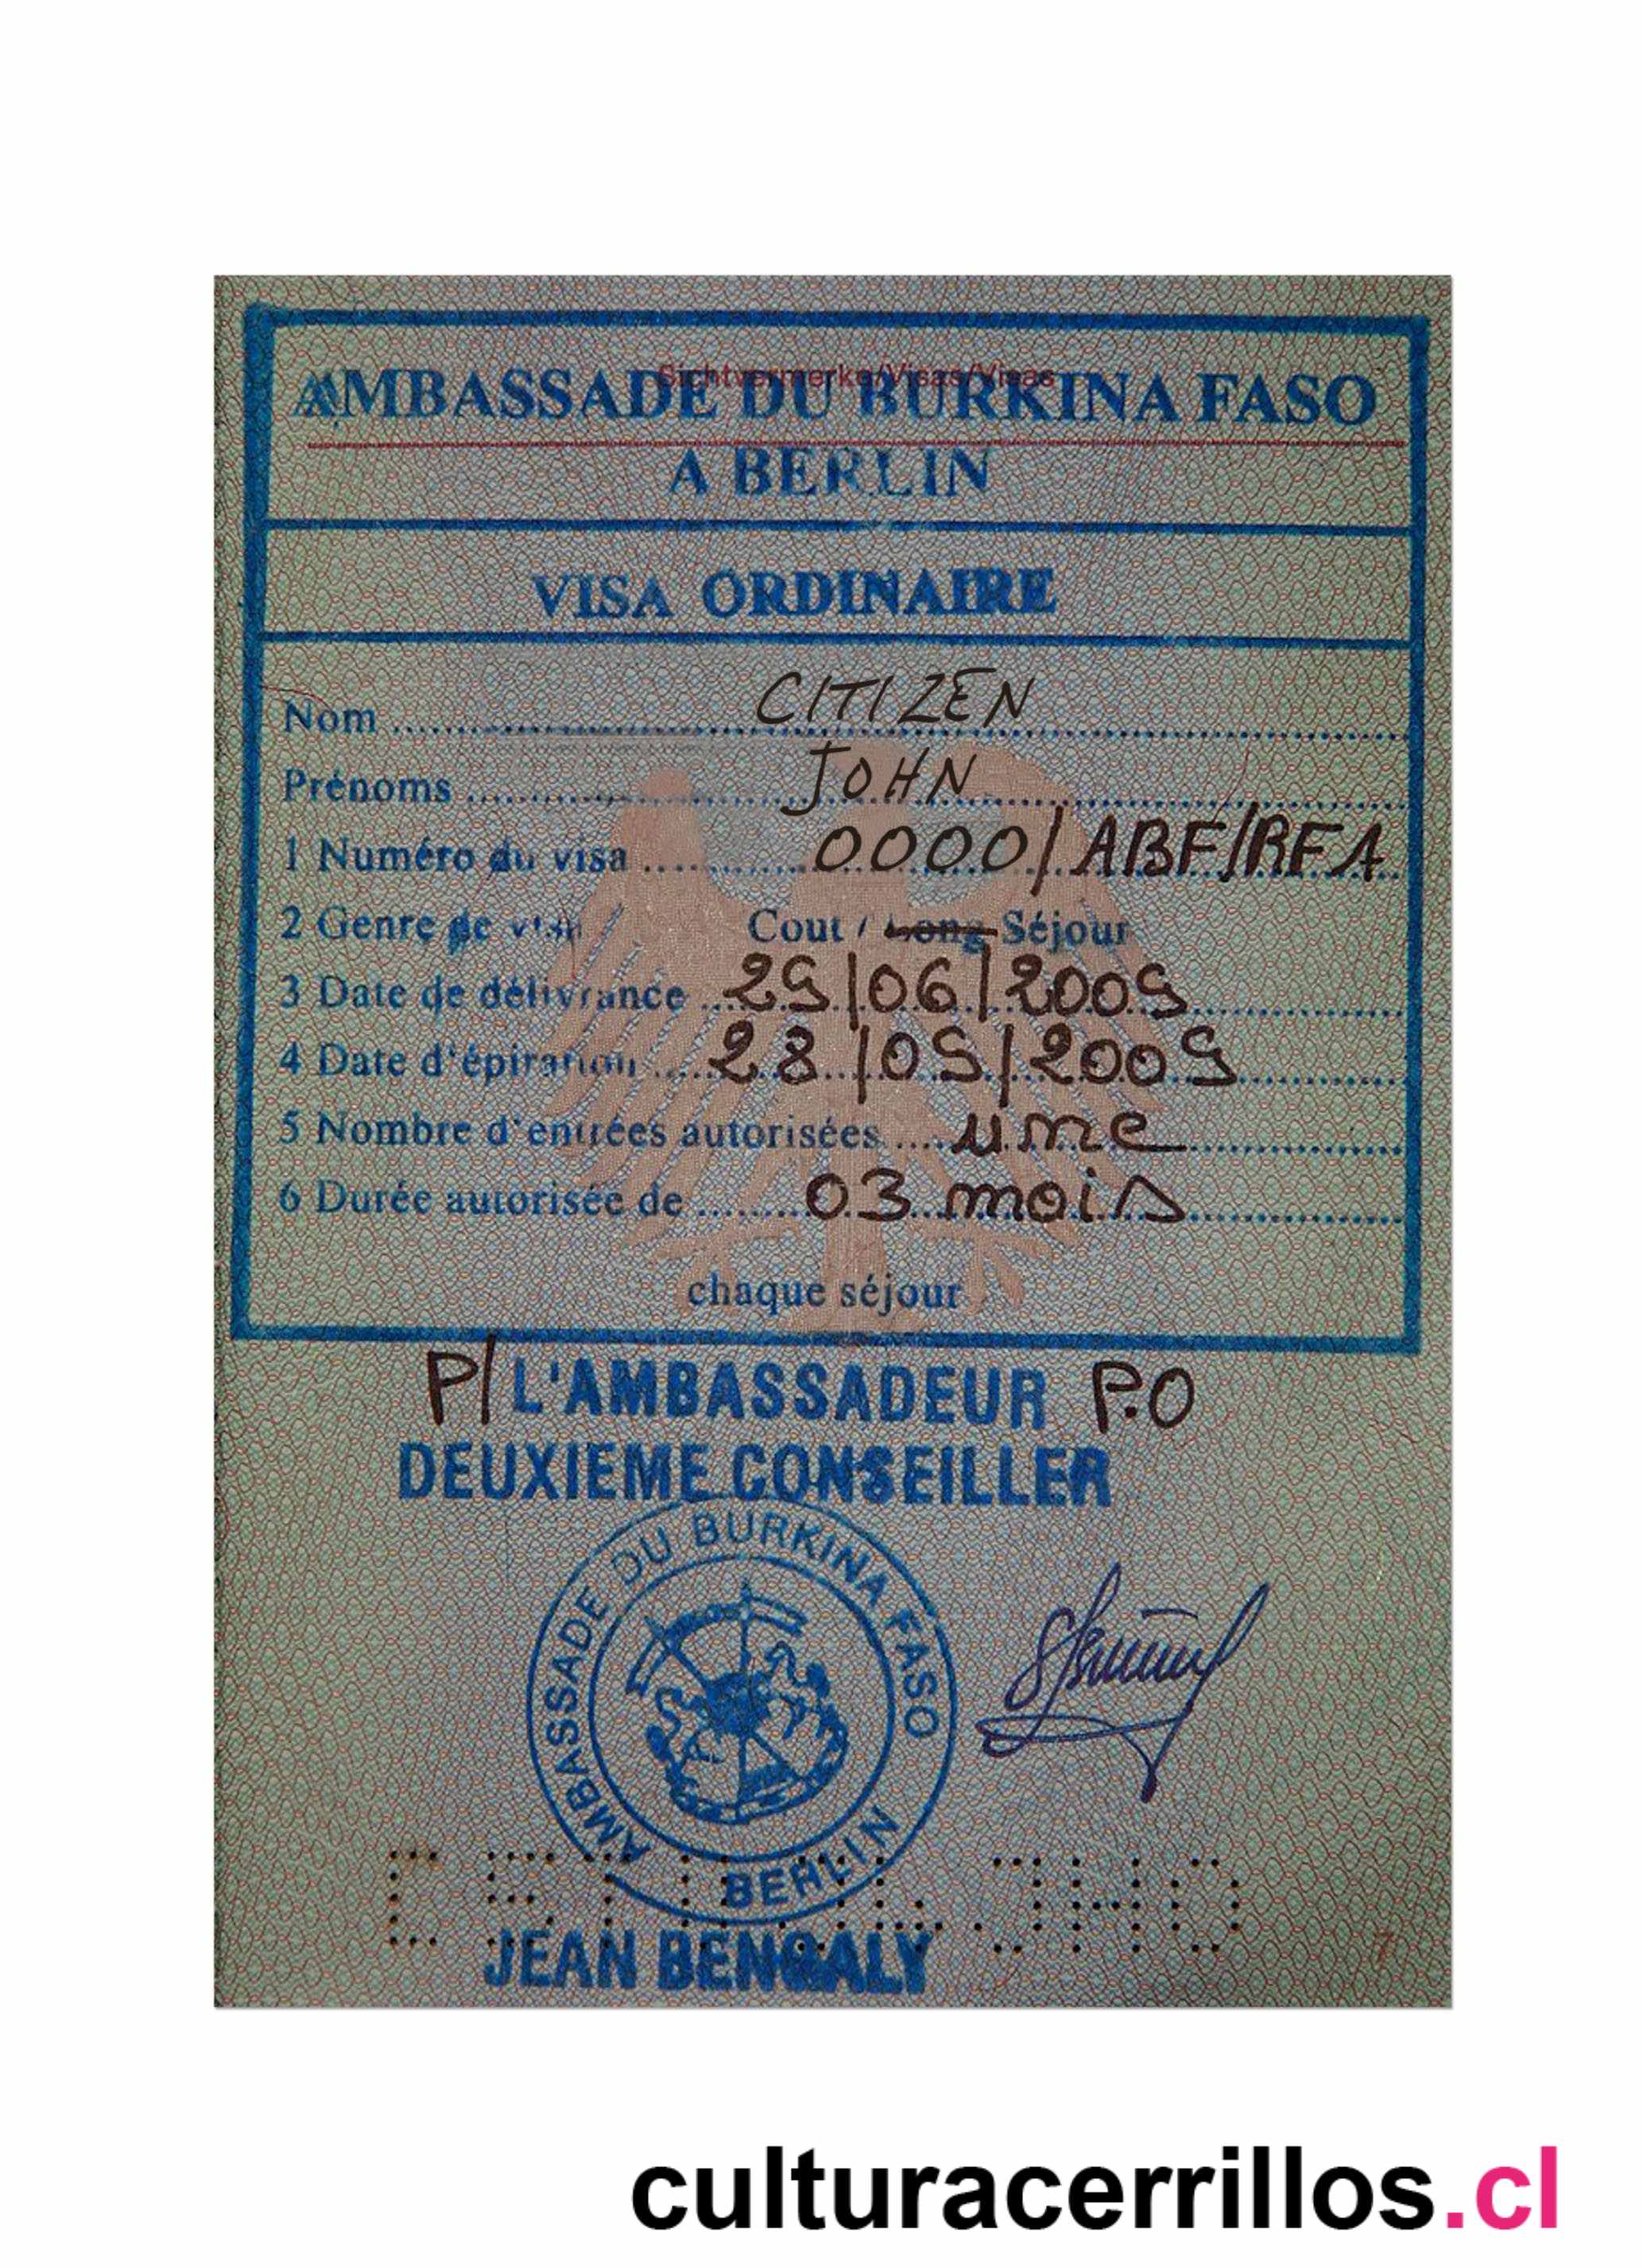 Sichtvermerke/Visas/Visas
AMBASSADE DU BURKINA FASO
A BERLIN
VISA ORDINAIRE
Nom CITIZEN
Prénoms JOHN
1 Numéro du visa 0000/ABF/RFA
2 Genre de visa Cout / Long Séjour
3 Date de délivrance 29/06/2009
4 Date d'épiration 28/09/2009
5 Nombre d'entrées autorisées une
6 Durée autorisée de 03 mois
chaque séjour
P/ L'AMBASSADEUR P.O
DEUXIEME CONSEILLER
AMBASSADE DU BURKINA FASO
BERLIN
JEAN BENGALY
7
culturacerrillos.cl